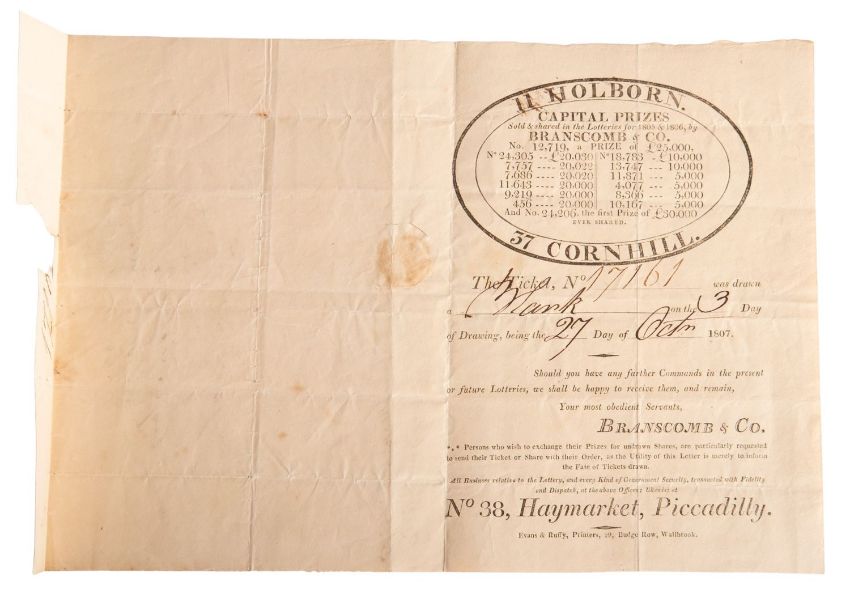 11 HOLBORN.
CAPITAL PRIZES
Sold & shared in the Lotteries for 1805 & 1806, by
BRANSCOMB & CO.
No. 12,719, a PRIZE of £25,000,
No 24,305 -- £20,030 No 18,783 -- £10,000
7,757 ---- 20,022 13,747 --- 10,000
7,686 ---- 20,020 11,871 --- 5,000
11,643 ---- 20,000 4,077 --- 5,000
9,219 ---- 20,000 8,366 --- 5,000
456 ---- 20,000 10,167 --- 5,000
And No. 24,206, the first Prize of £30,000
EVER SHARED.
37 CORNHILL.
The Ticket, No 17161 was drawn
a Blank on the 3 Day
of Drawing, being the 27 Day of Octr 1807.
Should you have any further Commands in the present
or future Lotteries, we shall be happy to receive them, and remain,
Your most obedient Servants,
BRANSCOMB & Co.
*,* Persons who wish to exchange their Prizes for undrawn Shares, are particularly requested
to send their Ticket or Share with their Order, as the Utility of this Letter is merely to inform
the Fate of Tickets drawn.
All Business relative to the Lottery, and every Kind of Government Security, transacted with Fidelity
and Dispatch, at the above Offices; likewise at
No 38, Haymarket, Piccadilly.
Evans & Ruffy, Printers, 29, Budge Row, Wallbrook.